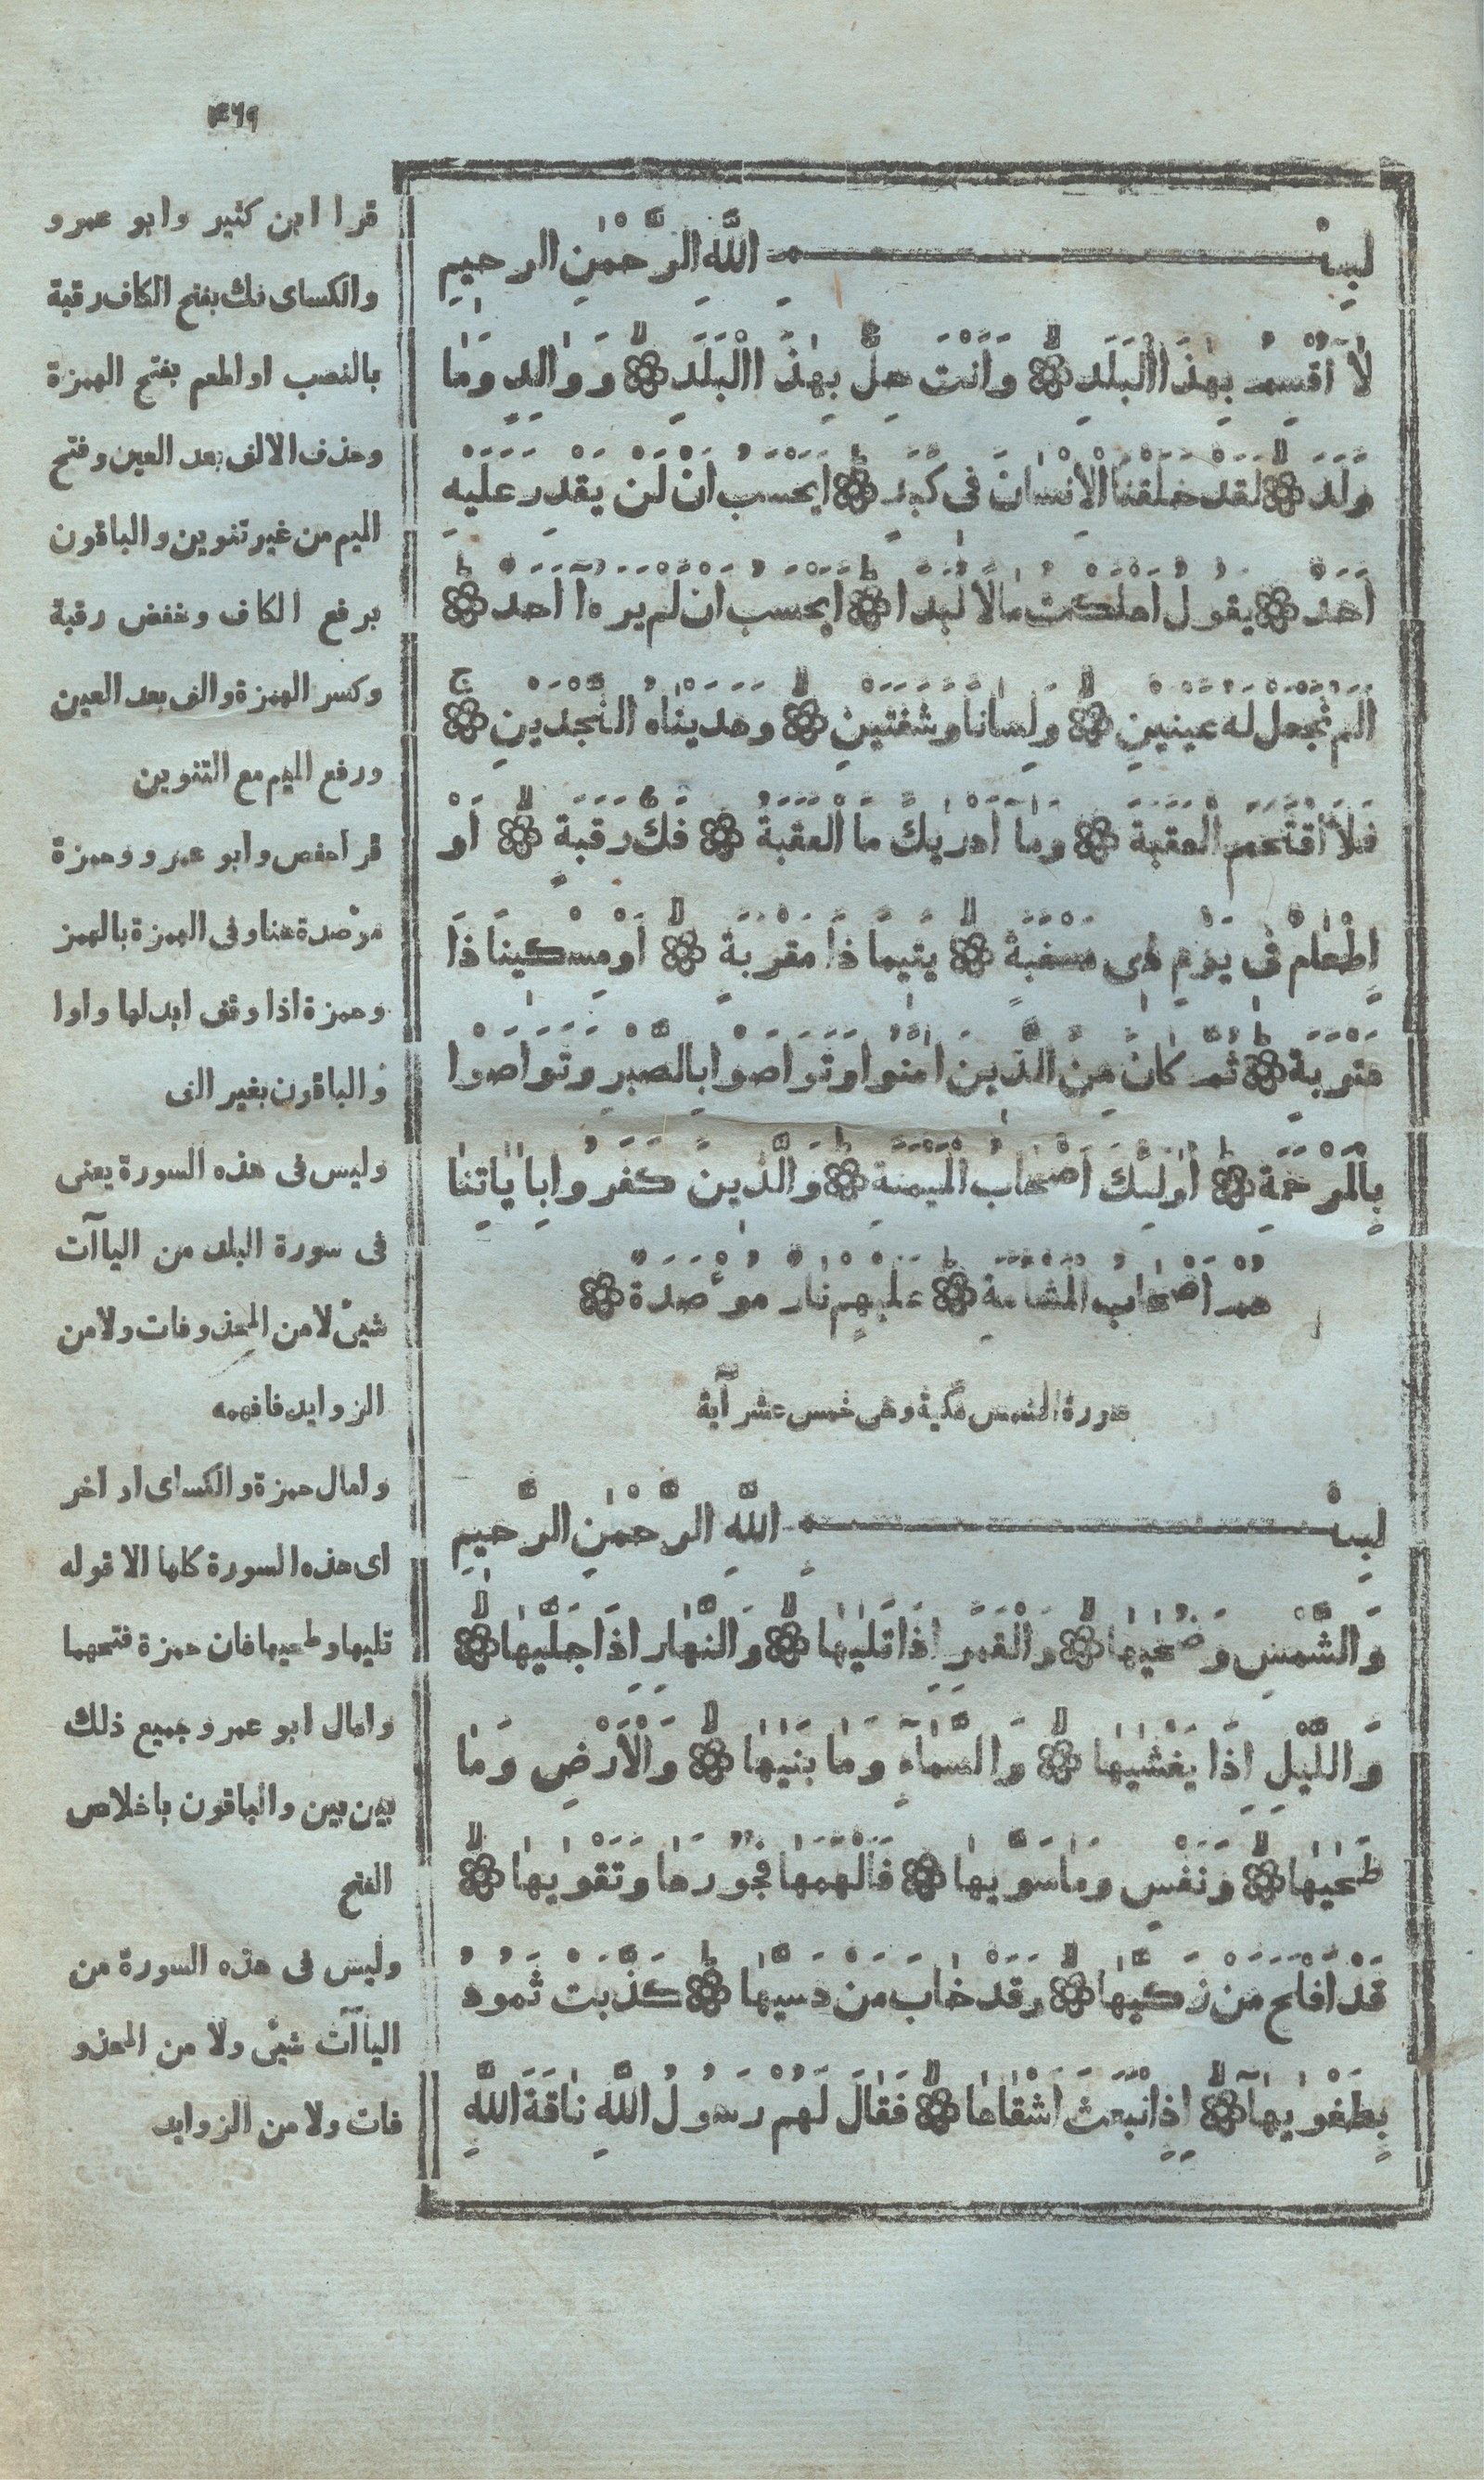 ۴۶۹
بِسْمِ اللَّهِ الرَّحْمٰنِ الرحيمِ
لٰاۤ اُقْسِمُ بِهٰذَا الْبَلَدِ ۙ وَاَنْتَ حِلٌّ بِهٰذَا الْبَلَدِ ۙ وَوٰالِدٍ وَمٰا
وَلَدَ ۙ لَقَدْ خَلَقْنَا الْاِنْسٰانَ فى كَبَدٍ ۗ اَيَحْسَبُ اَنْ لَنْ يَقْدِرَ عَلَيْهِ
اَحَدٌ يَقُولُ اَهْلَكْتُ مٰالًا لُبَدًا ۗ اَيَحْسَبُ اَنْ لَمْ يَرَهُۤ اَحَدٌ ۗ
اَلَمْ نَجْعَلْ لَهُ عَيْنَيْنِ ۙ وَلِسٰانًا وَشَفَتَيْنِ ۙ وَهَدَيْنٰاهُ النَّجْدَيْنِ ۚ
فَلَا اقْتَحَمَ الْعَقَبَةَ وَمٰاۤ اَدْرٰيكَ مَا الْعَقَبَةُ فَكُّ رَقَبَةٍ ۙ اَوْ
اِطْعٰامٌ فى يَوْمٍ ذى مَسْغَبَةٍ ۙ يَتيمًا ذٰا مَقْرَبَةٍ ۙ اَوْ مِسْكينًا ذٰا
مَتْرَبَةٍ ۗ ثُمَّ كٰانَ مِنَ الَّذينَ اٰمَنُوا وَتَوٰاصَوْا بِالصَّبْرِ وَتَوٰاصَوْا
بِالْمَرْحَمَةِ ۗ اُولٰئِكَ اَصْحٰابُ الْمَيْمَنَةِ ۗ وَالَّذينَ كَفَرُوا بِاٰيٰاتِنٰا
هُمْ اَصْحٰابُ الْمَشْاَمَةِ ۗ عَلَيْهِمْ نٰارٌ مُؤْصَدَةٌ
سورة الشمس مكية وهى خمس عشر آية
بِسْمِ اللَّهِ الرَّحْمٰنِ الرَّحيمِ
وَالشَّمْسِ وَضُحٰيهٰا ۙ وَالْقَمَرِ اِذٰا تَلٰيهٰا ۙ وَالنَّهٰارِ اِذٰا جَلّٰيهٰا ۙ
وَاللَّيْلِ اِذٰا يَغْشٰيهٰا ۙ وَالسَّمٰاۤءِ وَمٰا بَنٰيهٰا ۙ وَالْاَرْضِ وَمٰا
طَحٰيهٰا ۙ وَنَفْسٍ وَمٰا سَوّٰيهٰا فَاَلْهَمَهٰا فُجُورَهٰا وَتَقْوٰيهٰا ۙ
قَدْ اَفْلَحَ مَنْ زَكّٰيهٰا ۙ وَقَدْ خٰابَ مَنْ دَسّٰيهٰا ۗ كَذَّبَتْ ثَمُودُ
بِطَغْوٰيهٰاۤ ۙ اِذِ انْبَعَثَ اَشْقٰاهٰا ۙ فَقٰالَ لَهُمْ رَسُولُ اللَّهِ نٰاقَةَ اللَّهِ
قرا ابن كثير وابو عمرو
والكساى فك بفتح الكاف رقبة
بالنصب او اطعم بفتح الهمزة
وحذف الالف بعد العين وفتح
الميم من غير تنوين والباقون
برفع الكاف وخفض رقبة
وكسر الهمزة والف بعد العين
ورفع الميم مع التنوين
قرأ حفص وابو عمرو وحمزة
مؤصدة هنا وفى الهمزة بالهمز
وحمزة اذا وقف ابدلها واوا
والباقون بغير الف
وليس فى هذه السورة يعنى
فى سورة البلد من الياآت
شيئ لا من المحذوفات ولا من
الزوايد فافهمه
وامال حمزة والكساى او اخر
اى هذه السورة كلها الا قوله
تليها وطحيها فان حمزة فتحهما
وامال ابو عمرو جميع ذلك
بين بين والباقون باخلاص
الفتح
وليس فى هذه السورة من
الياآت شيئ ولا من المحذو
فات ولا من الزوايد